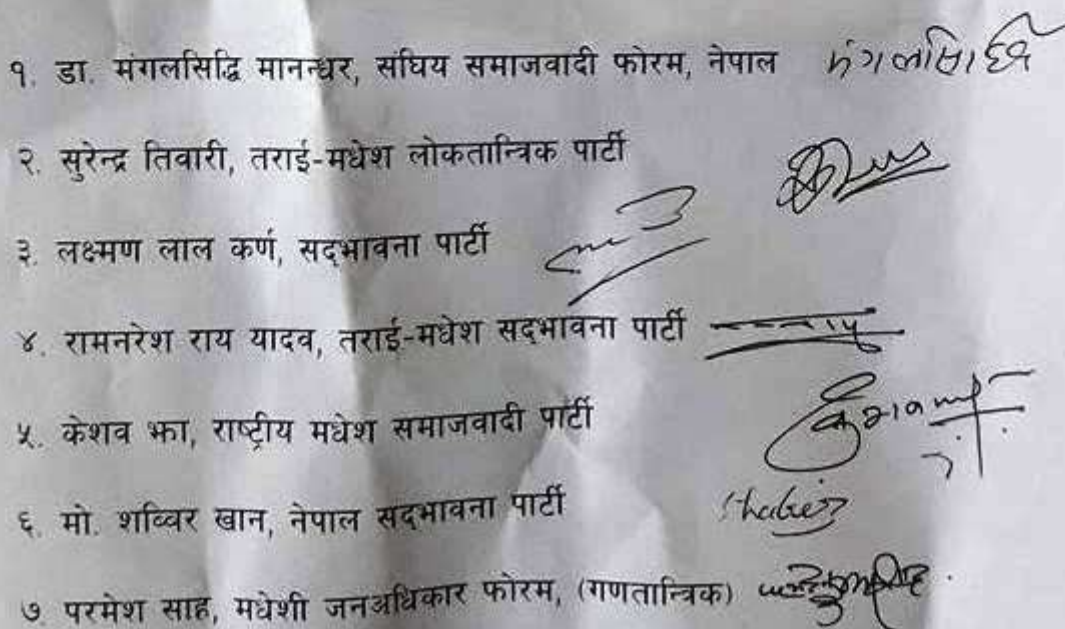 १. डा. मंगलसिद्धि मानन्धर, संघिय समाजवादी फोरम, नेपाल मंगलसिद्धि
२. सुरेन्द्र तिवारी, तराई-मधेश लोकतान्त्रिक पार्टी
३. लक्ष्मण लाल कर्ण, सद्भावना पार्टी
४. रामनरेश राय यादव, तराई-मधेश सद्भावना पार्टी
५. केशव झा, राष्ट्रीय मधेश समाजवादी पार्टी
६. मो. शव्विर खान, नेपाल सद्भावना पार्टी
७. परमेश साह, मधेशी जनअधिकार फोरम, (गणतान्त्रिक)